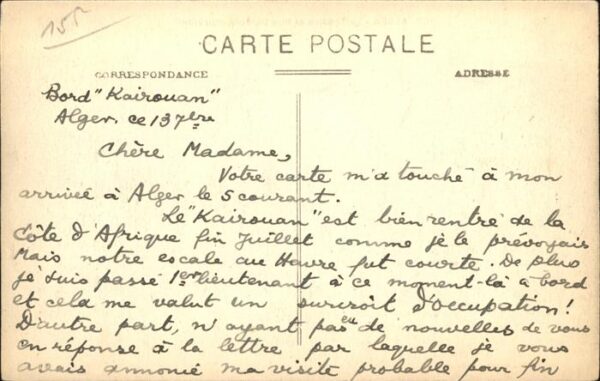 155
CARTE POSTALE
CORRESPONDANCE
ADRESSE
Bord "Kairouan"
Alger, ce 13 7bre
Chère Madame,
Votre carte m'a touché à mon
arrivée à Alger le 5 courant.
Le "Kairouan" est bien rentré de la
Côte d'Afrique fin Juillet comme je le prévoyais
mais notre escale au Havre fut courte. De plus
je suis passé 1er lieutenant à ce moment-là à bord
et cela me valut un surcroit d'occupation!
D'autre part, n'ayant pas eu de nouvelles de vous
en réponse à la lettre par laquelle je vous
avais annoncé ma visite probable pour fin